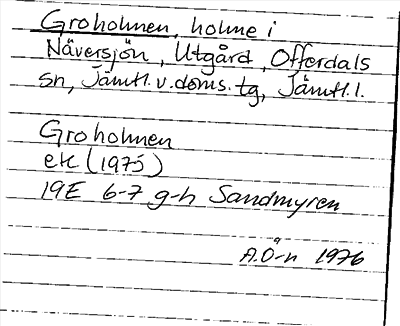 Groholmen, holme i
Näversjön, Utgård, Offerdals
sn, Jämtl.v.doms.tg, Jämtl.l.
Groholmen
ek (1975)
19E 6-7 g-h Sandmyren
A.Ö-n 1976